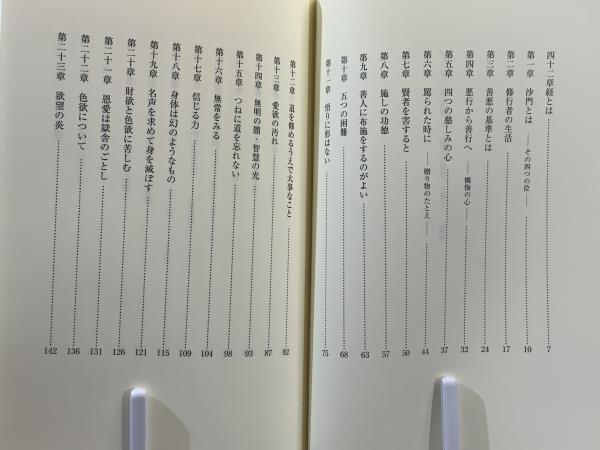 四十二章経とは……7
第一章 沙門とは ――その四つの位――……10
第二章 修行者の生活……17
第三章 善悪の基準とは……24
第四章 悪行から善行へ ――懺悔の心――……32
第五章 四つの慈しみの心……37
第六章 罵られた時に ――贈り物のたとえ――……44
第七章 賢者を害すると……50
第八章 施しの功徳……57
第九章 善人に布施をするのがよい……63
第十章 五つの困難……68
第十一章 悟りに形はない……75
第十二章 道を修めるうえで大事なこと……82
第十三章 愛欲の汚れ……87
第十四章 無明の闇・智慧の光……93
第十五章 つねに道を忘れない……98
第十六章 無常をみる……104
第十七章 信じる力……109
第十八章 身体は幻のようなもの……115
第十九章 名声を求めて身を滅ぼす……121
第二十章 財欲と色欲に苦しむ……126
第二十一章 恩愛は獄舎のごとし……131
第二十二章 色欲について……136
第二十三章 欲望の炎……142